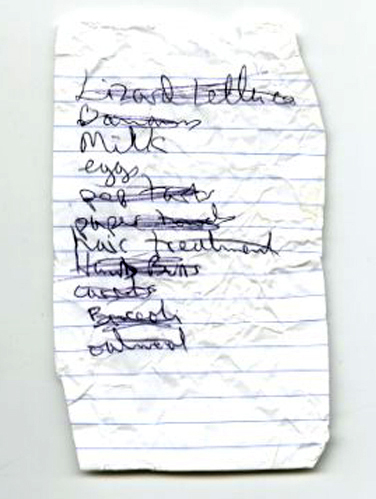 Lizard Lettuce
Bananas
Milk
eggs
pop tarts
paper towels
Hair treatment
Buns
carrots
Broccoli
oatmeal